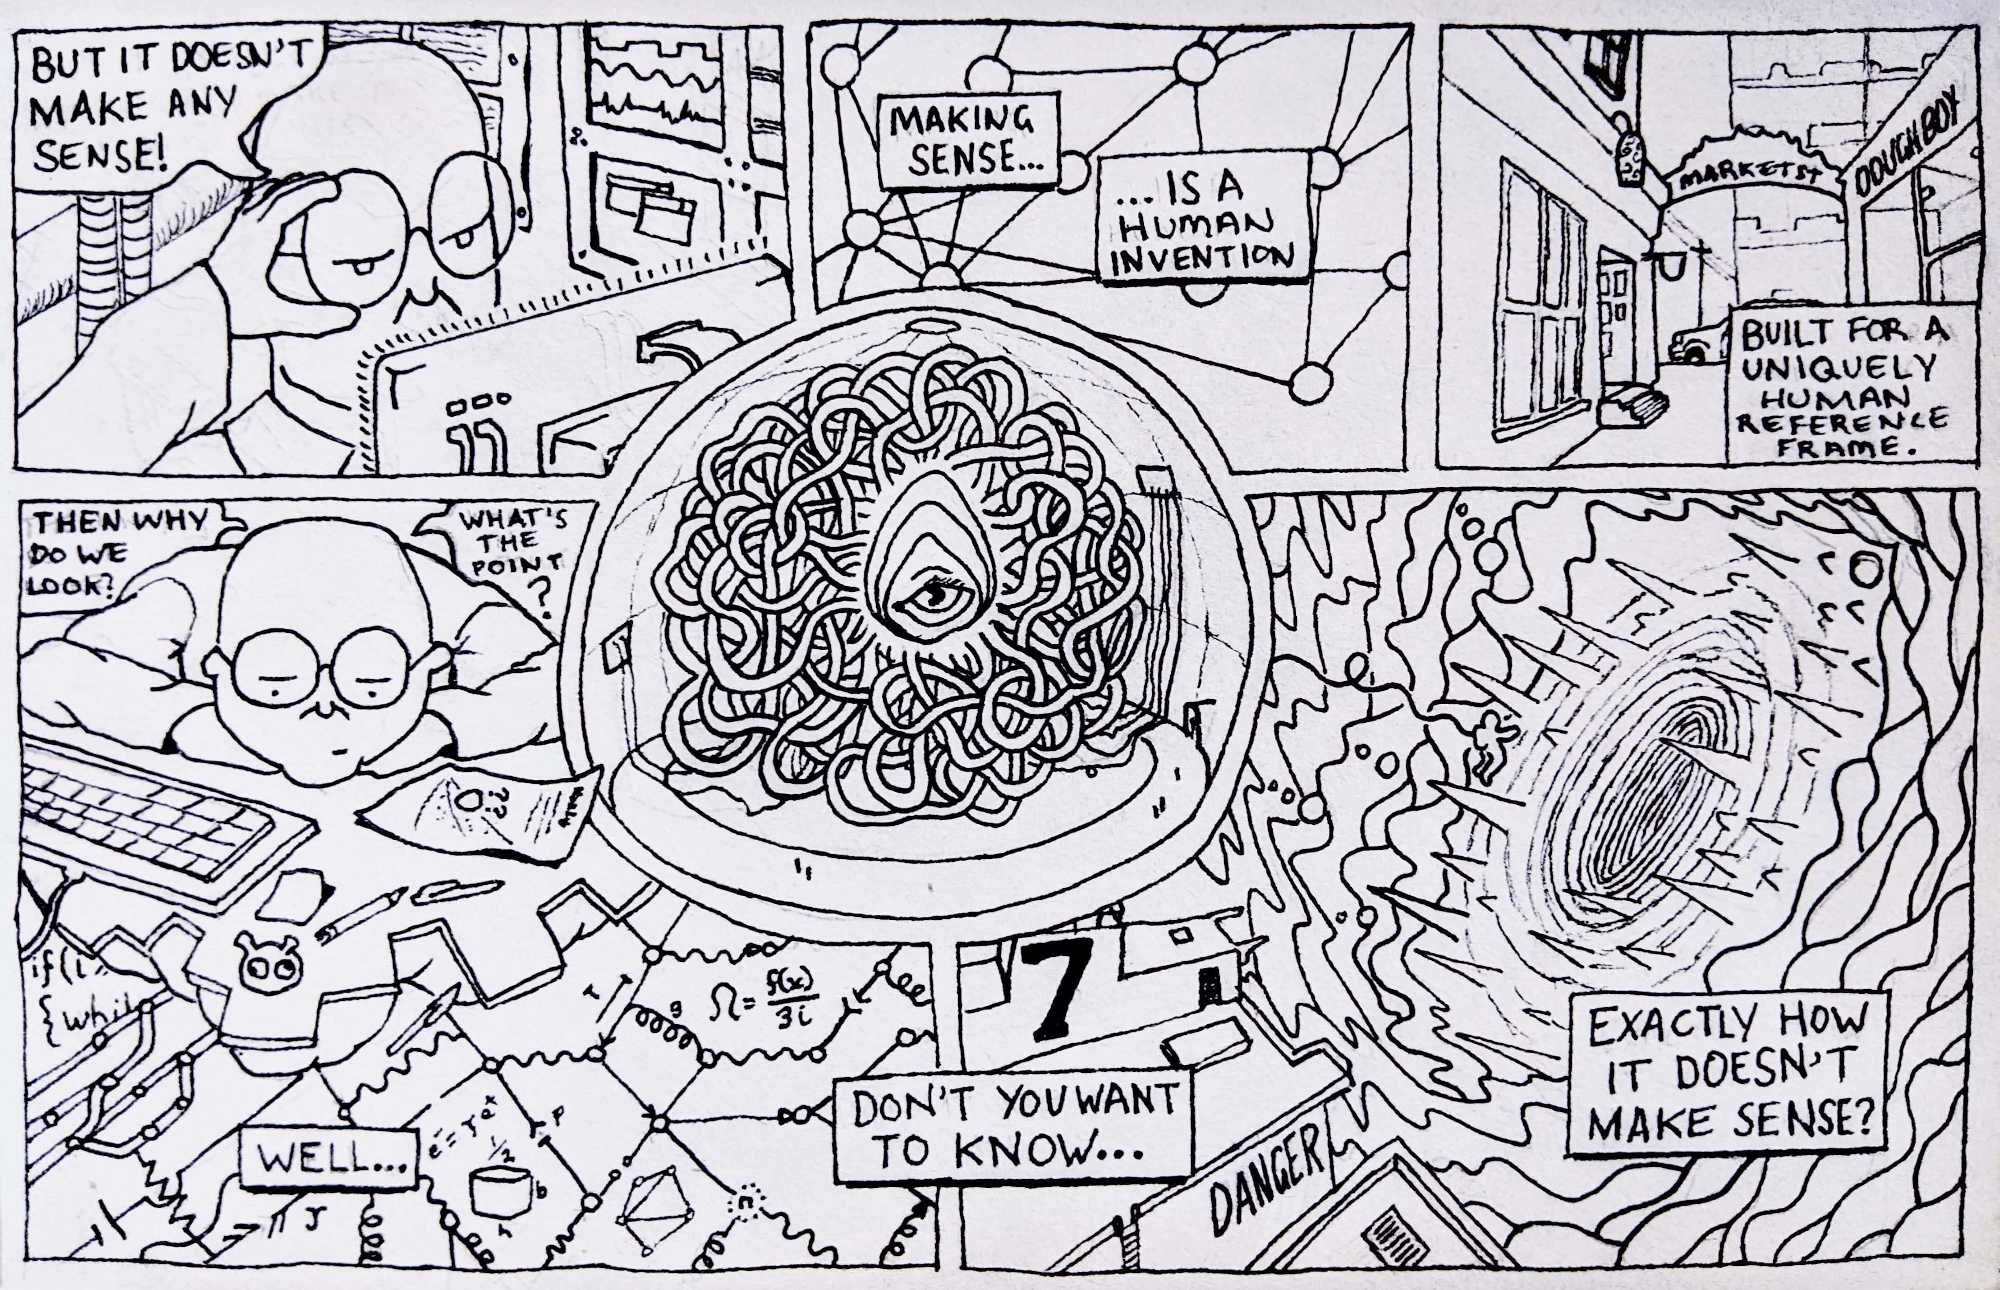 BUT IT DOESN'T
MAKE ANY
SENSE!
MAKING
SENSE...
...IS A
HUMAN
INVENTION
MARKET ST
DOUGHBOY
BUILT FOR A
UNIQUELY
HUMAN
REFERENCE
FRAME.
THEN WHY
DO WE
LOOK?
WHAT'S
THE
POINT
?
??
if(i
{whil
Ω = f(x)/3i
WELL...
7
DON'T YOU WANT
TO KNOW...
DANGER
EXACTLY HOW
IT DOESN'T
MAKE SENSE?